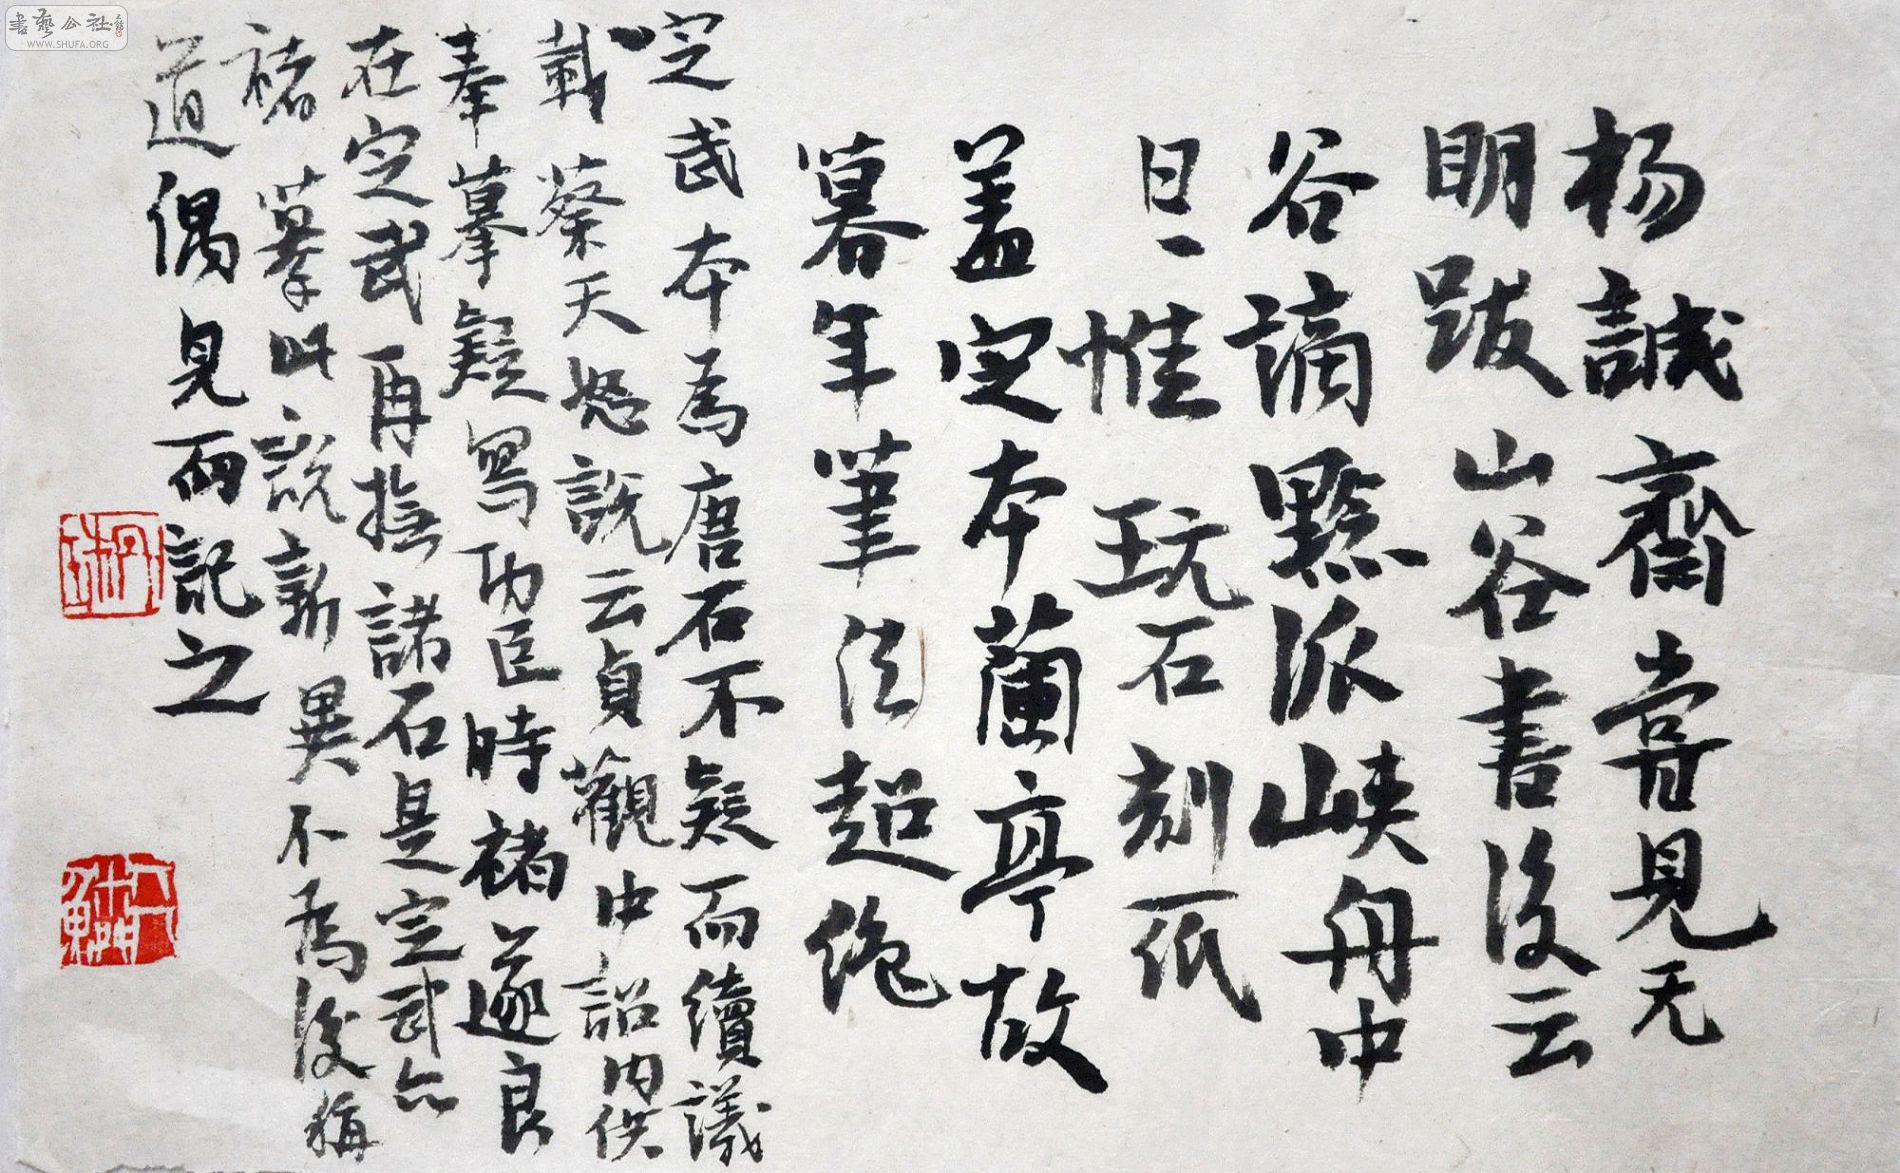 杨誠齋嘗見无
明跋山谷書後云
谷謫黔派峡舟中
日〻惟玩石刻一紙
盖定本蘭亭故
暮年筆法超绝
定武本為唐石不疑而續議
載蔡天啓説云貞觀中詔内供
奉摹寫功臣時褚遂良
在定武再撫諸石是定武亦
褚摹此説新異不為後稱
道偶見而記之
書藝公社
WWW.SHUFA.ORG